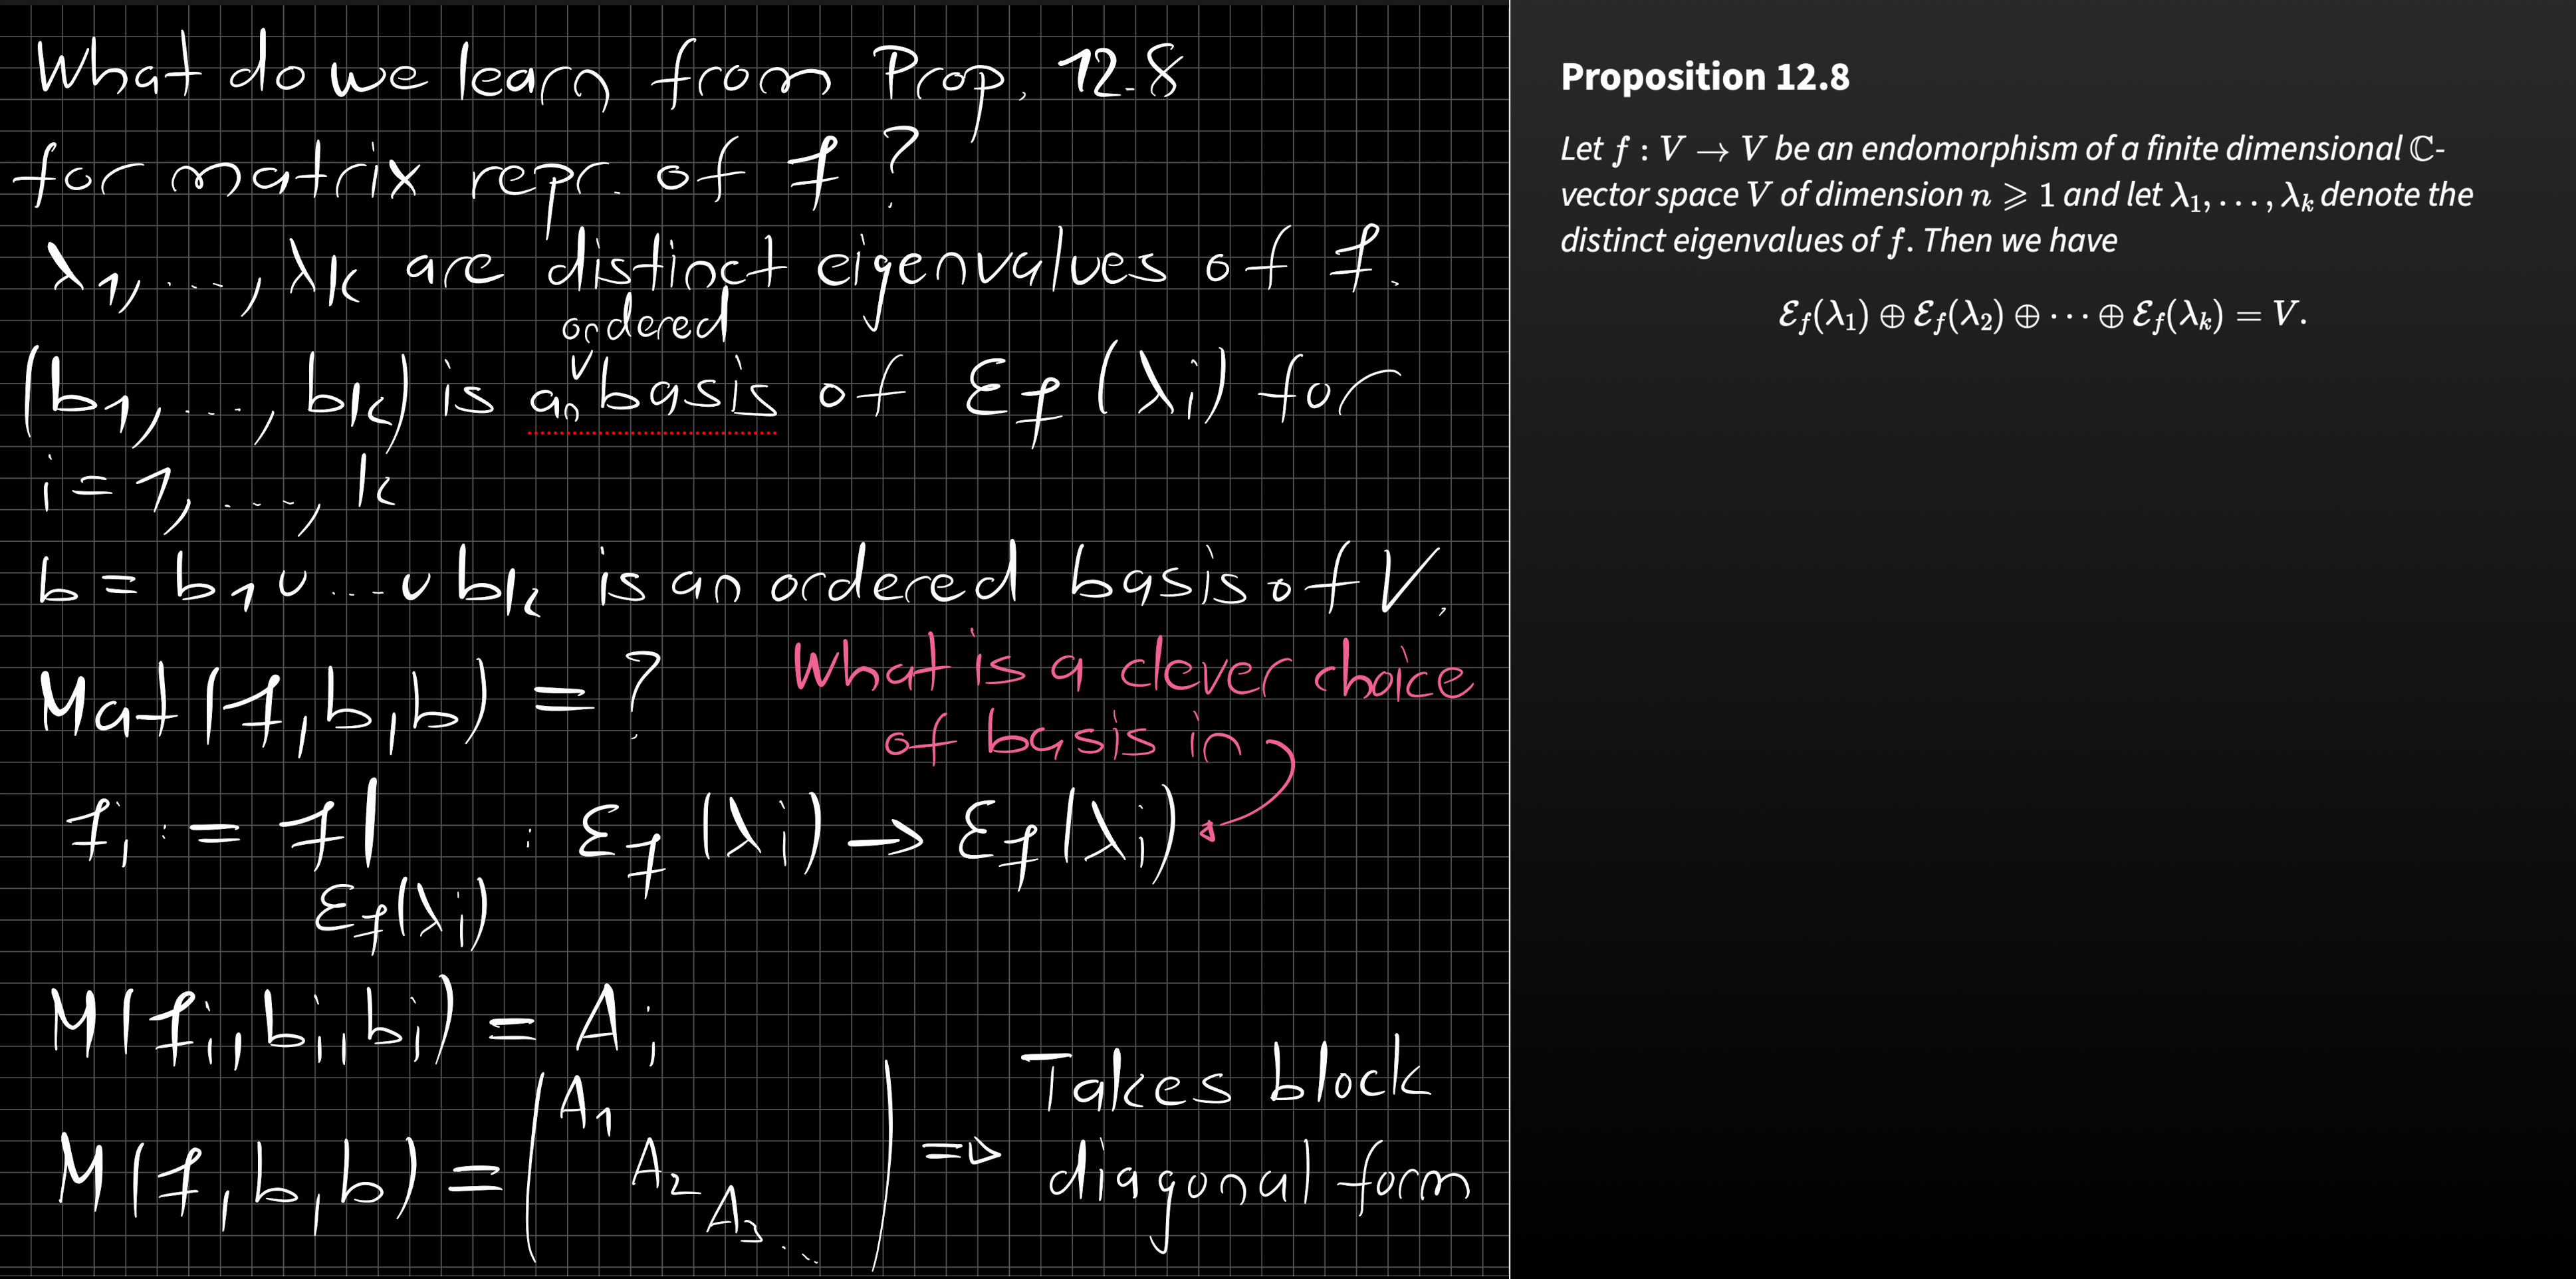 What do we learn from Prop. 12.8
for matrix repr. of f ?
λ1, ..., λk are distinct eigenvalues of f.
ordered
(b1, ..., bk) is an ∨ basis of Ef (λi) for
i = 1, ..., k
b = b1 ∪ ... ∪ bk is an ordered basis of V.
Mat (f, b, b) = ?
What is a clever choice
of basis in
fi := f| : Ef (λi) → Ef (λi)
Ef(λi)
M(fi, bi, bi) = Ai
M(f, b, b) = (A1 A2 A3 ...) ⇒ Takes block
diagonal form
Proposition 12.8
Let f : V → V be an endomorphism of a finite dimensional ℂ-
vector space V of dimension n ⩾ 1 and let λ1, . . . , λk denote the
distinct eigenvalues of f. Then we have
Ef(λ1) ⊕ Ef(λ2) ⊕ · · · ⊕ Ef(λk) = V.